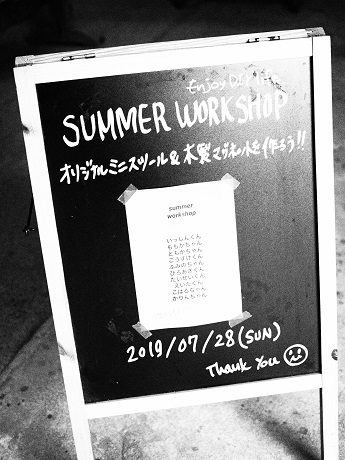 Enjoy DIY
SUMMER WORKSHOP
オリジナルミニスツール&木製マグネットを作ろう!!
summer
workshop
いっしんくん
ももかちゃん
ともかちゃん
こうすけくん
ふみのちゃん
ひろあきくん
たいせいくん
えいたくん
こはるちゃん
かりんちゃん
2019/07/28(SUN)
Thank You